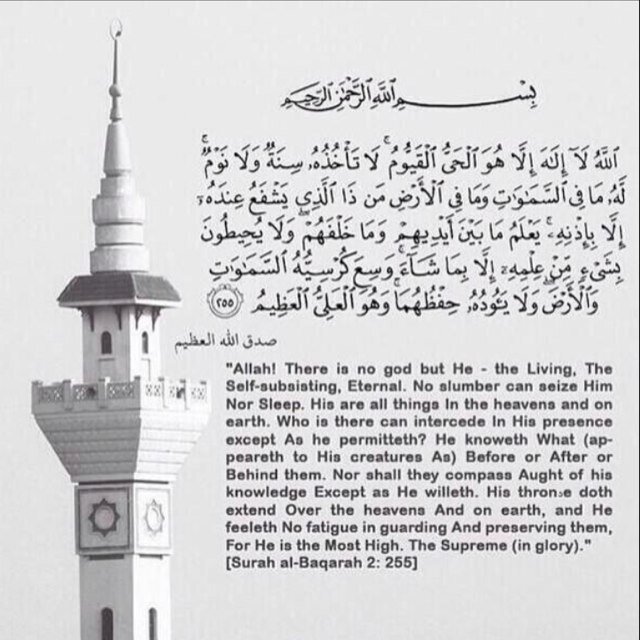 بِسْمِ ٱللَّهِ ٱلرَّحْمَٰنِ ٱلرَّحِيمِ
ٱللَّهُ لَآ إِلَٰهَ إِلَّا هُوَ ٱلْحَىُّ ٱلْقَيُّومُ ۚ لَا تَأْخُذُهُۥ سِنَةٌ وَلَا نَوْمٌ ۚ
لَّهُۥ مَا فِى ٱلسَّمَٰوَٰتِ وَمَا فِى ٱلْأَرْضِ ۗ مَن ذَا ٱلَّذِى يَشْفَعُ عِندَهُۥٓ
إِلَّا بِإِذْنِهِۦ ۚ يَعْلَمُ مَا بَيْنَ أَيْدِيهِمْ وَمَا خَلْفَهُمْ ۖ وَلَا يُحِيطُونَ
بِشَىْءٍ مِّنْ عِلْمِهِۦٓ إِلَّا بِمَا شَآءَ ۚ وَسِعَ كُرْسِيُّهُ ٱلسَّمَٰوَٰتِ
وَٱلْأَرْضَ ۖ وَلَا يَـُٔودُهُۥ حِفْظُهُمَا ۚ وَهُوَ ٱلْعَلِىُّ ٱلْعَظِيمُ ٢٥٥
صدق الله العظيم
"Allah! There is no god but He - the Living, The
Self-subsisting, Eternal. No slumber can seize Him
Nor Sleep. His are all things In the heavens and on
earth. Who is there can intercede In His presence
except As he permitteth? He knoweth What (ap-
peareth to His creatures As) Before or After or
Behind them. Nor shall they compass Aught of his
knowledge Except as He willeth. His throne doth
extend Over the heavens And on earth, and He
feeleth No fatigue in guarding And preserving them,
For He is the Most High. The Supreme (in glory)."
[Surah al-Baqarah 2: 255]